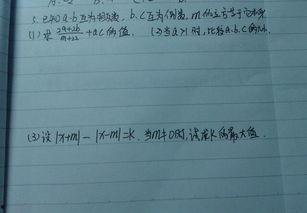 5.已知a.b互为相反数,b.c互为倒数,m的立方等于它本身
(1)求 (2a+2b)/(m+2) +ac的值. (2)当a>1时,比较a.b.c的大小.
(3)设|x+m|-|x-m|=k.当m≠0时,误差k的最大值.